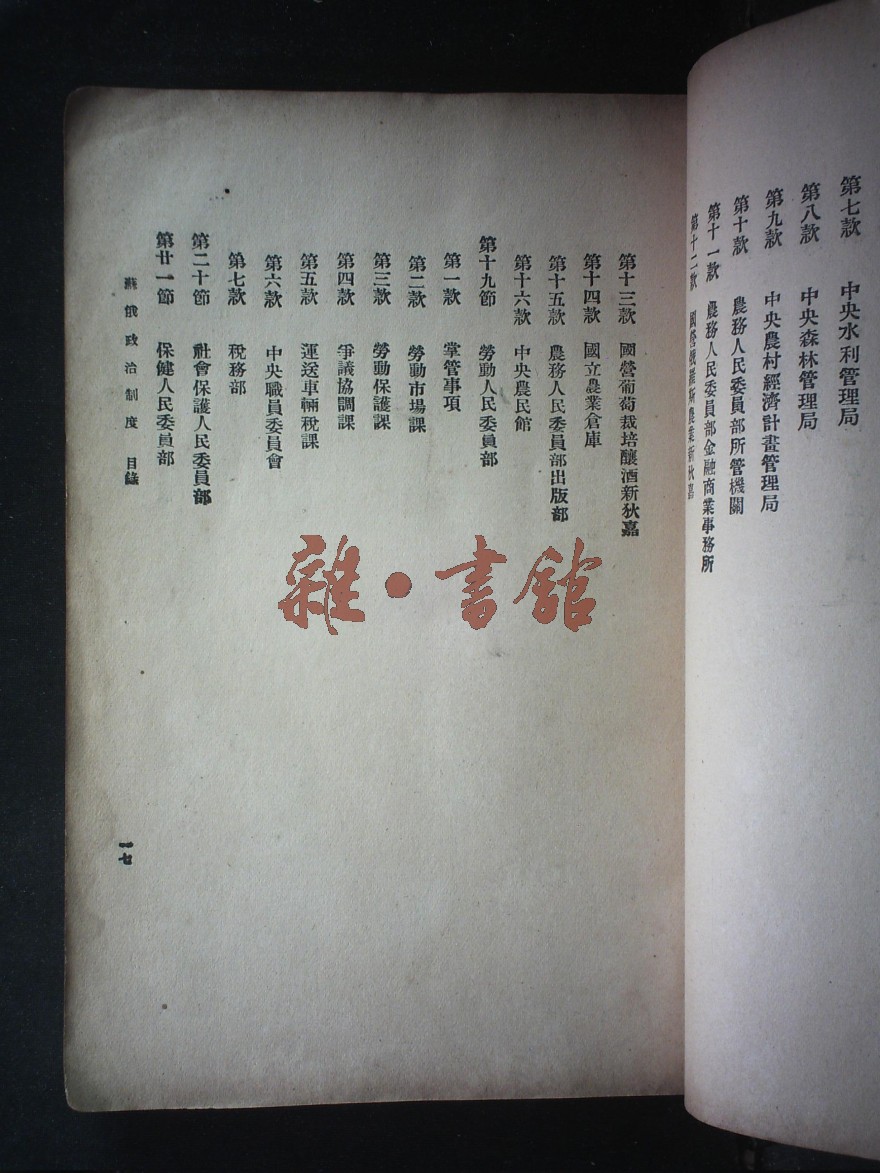 第七款 中央水利管理局
第八款 中央森林管理局
第九款 中央農村經濟計畫管理局
第十款 農務人民委員部所管機關
第十一款 農務人民委員部金融商業事務所
第十二款 國營俄羅斯農業新狄嘉
第十三款 國營葡萄栽培釀酒新狄嘉
第十四款 國立農業倉庫
第十五款 農務人民委員部出版部
第十六款 中央農民館
第十九節 勞動人民委員部
第一款 掌管事項
第二款 勞動市場課
第三款 勞動保護課
第四款 爭議協調課
第五款 運送車輛稅課
第六款 中央職員委員會
第七款 稅務部
第二十節 社會保護人民委員部
第廿一節 保健人民委員部
蘇俄政治制度 目錄
一七
雜·書館